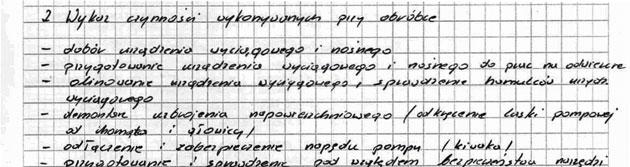 2 Wykaz czynności wykonywanych przy obróbce
- dobór urządzenia wyciągowego i nośnego
- przygotowanie urządzenia wyciągowego i nośnego do prac na odwiercie
- olinowanie urządzenia wyciągowego, sprawdzenie hamulców urządz.
wyciągowego
- demontaż uzbrojenia napowierzchniowego /odkręcenie laski pompowej
od chomąta i głowicy/
- odłączenie i zabezpieczenie napędu pompy /kiwaka/
- przygotowanie i sprawdzenie pod względem bezpieczeństwa narzędzi